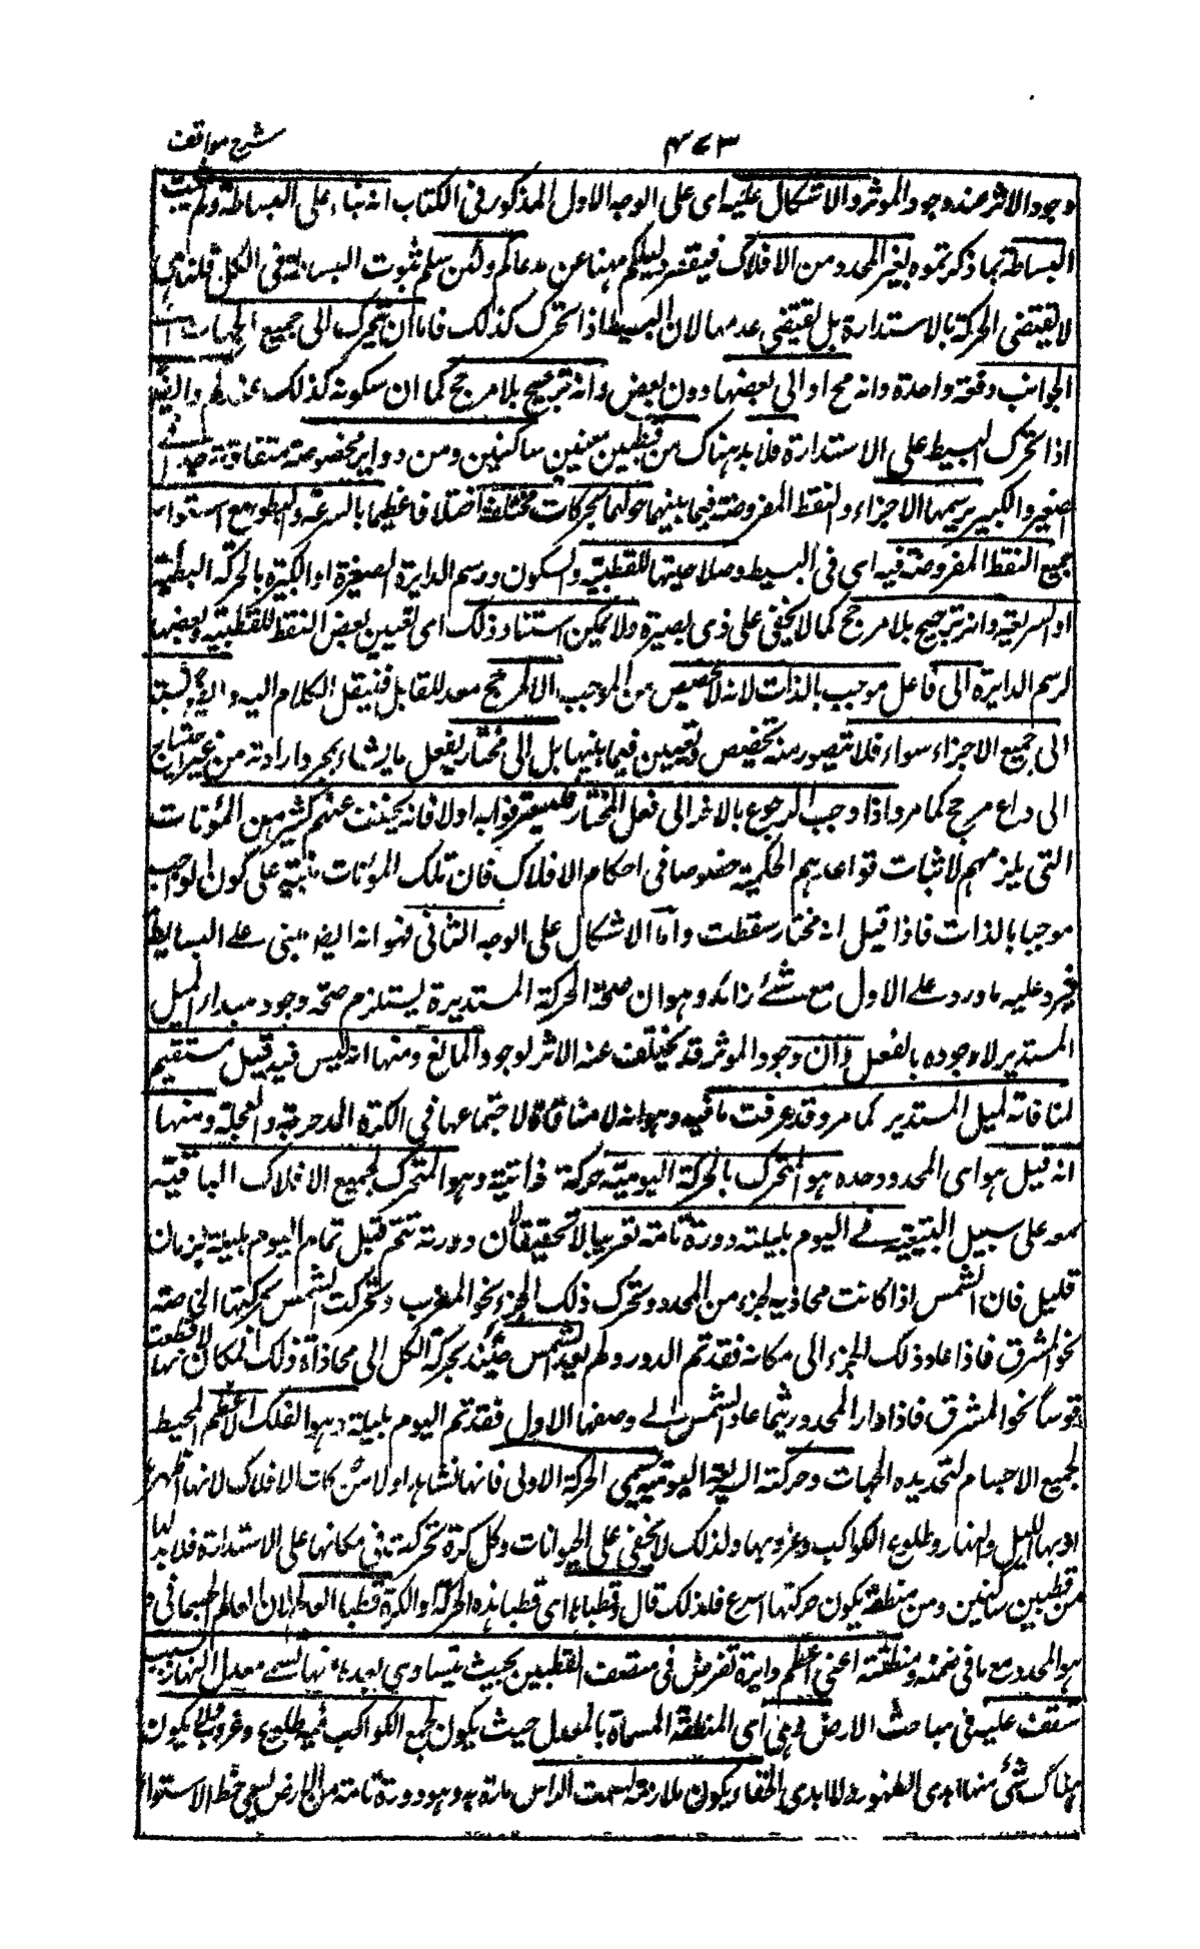 شرح مواقف
۴۷۳
وجود الاثر عند وجود الموثر والاشكال عليه اى على الوجه الاول المذكور فى الكتاب انه بناء على البساطة ولم يثبت
البساطة بما ذكرتموه لغير المحدد من الافلاك فيقصر دليلكم ههنا عن مدعاكم ولئن سلم ثبوت البساطة فى الكل فلذى
لا يقتضى الحركة بالاستدارة بل يقتضى عدمها لان البسيط اذا تحرك كذلك فاما ان يتحرك الى جميع الجهات اى
الجوانب دفعة واحدة وانه مح او الى بعضها دون بعض وانه ترجيح بلا مرجح كما ان سكونه كذلك عندهم وايضا
اذا تحرك البسيط على الاستدارة فلا بد هناك من قطبين معينين ساكنين ومن دواير مخصوصة متفاوتة جدا فى
الصغير والكبير يرسمها الاجزاء والنقط المفروضة فيما بينهما حولهما بحركات مختلفة اختلافا عظيما بالسرعة والبطوء مع استواء
جميع النقط المفروضة فيه اى فى البسيط وصلاحيتها للقطبية والسكون ورسم الدايرة الصغيرة او الكبيرة بالحركة البطيئة
او السريعة وانه ترجيح بلا مرجح كما لا يخفى على ذى بصيرة ولا يمكن استناد ذلك اى تعيين بعض النقط للقطبية وبعضها
لرسم الدايرة الى فاعل موجب بالذات لانه لا تخصيص من الموجب الا لمرجح معد للقابل فينقل الكلام اليه وايضا نسبته
الى جميع الاجزاء سواء فلا يتصور منه تخصيص وتعيين فيما بينها بل الى مختار يفعل ما يشاء بمجرد ارادته من غير احتياج
الى داع مرجح كما مر واذا وجب الرجوع بالاخرة الى فعل المختار فليعترفوا به اولا فانه يخفف عنهم كثير من المؤنات
التى يلزمهم لاثبات قواعدهم الحكمية خصوصا فى احكام الافلاك فان تلك المؤنات مبنية على كون الواجب
موجبا بالذات فاذا قيل انه مختار سقطت واما الاشكال على الوجه الثانى فهو انه ايضا مبنى على البساطة
فيرد عليه ما ورد على الاول مع شئ زائد وهو ان صحة الحركة المستديرة يستلزم صحة وجود مبدء الميل
المستدير لا وجوده بالفعل وان وجود الموثر قد يتخلف عنه الاثر لوجود المانع ومنها انه ليس فيه ميل مستقيم
لمنافاته لميل المستدير كما مر وقد عرفت ما فيه وهو انه لا منافاة لاجتماعها فى الكرة المدحرجة والعجلة ومنها
انه قيل هو اى المحدد وحده هو المتحرك بالحركة اليومية حركة ذاتية وهو المتحرك لجميع الافلاك الباقية
معه على سبيل التبعية فى اليوم بليلته دورة تامة تقريبا لا تحقيقا لان دورته تتم قبل تمام اليوم بليلته بزمان
قليل فان الشمس اذا كانت محاذية لجزء من المحدد وتحرك ذلك الجزء نحو المغرب وتحركت الشمس بحركتها الخاصة
نحو المشرق فاذا عاد ذلك الجزء الى مكانه فقد تم الدور ولم يعد الشمس حينئذ بحركة الكل الى محاذاة ذلك المكان لانها قطعت
قوسا نحو المشرق فاذا دار المحدد ريثما عاد الشمس الى وضعها الاول فقد تم اليوم بليلته وهو الفلك الاعظم المحيط
لجميع الاجسام لتحديده الجهات وحركته السريعة اليومية يسمى الحركة الاولى فانها تشاهد اولا من حركات الافلاك لانها اظهر
اذ بها الليل والنهار وطلوع الكواكب وغروبها ولذلك لا يخفى على الحيوانات وكل كرة تحركت فى مكانها على الاستدارة فلا بد لها
من قطبين ساكنين ومن منطقة يكون حركتها اسرع فلذلك قال وقطباه اى قطبا هذه الحركة او الكرة قطبا العالم لان العالم الجسمانى
هو المحدد مع ما فى ضمنه ومنطقته اعنى اعظم دايرة تفرض فى منتصف القطبين بحيث يتساوى بعدها عنهما يسمى معدل النهار لسبب
ستقف عليه فى مباحث الارض وهى اى المنطقة المسماة بالمعدل حيث يكون لجميع الكواكب فيه طلوع وغروب فلا يكون
هناك شئ منها ابدى الظهور ولا ابدى الخفاء يكون ملازمة لسمت الراس مارة به وهو دورة تامة من الارض يسمى خط الاستواء